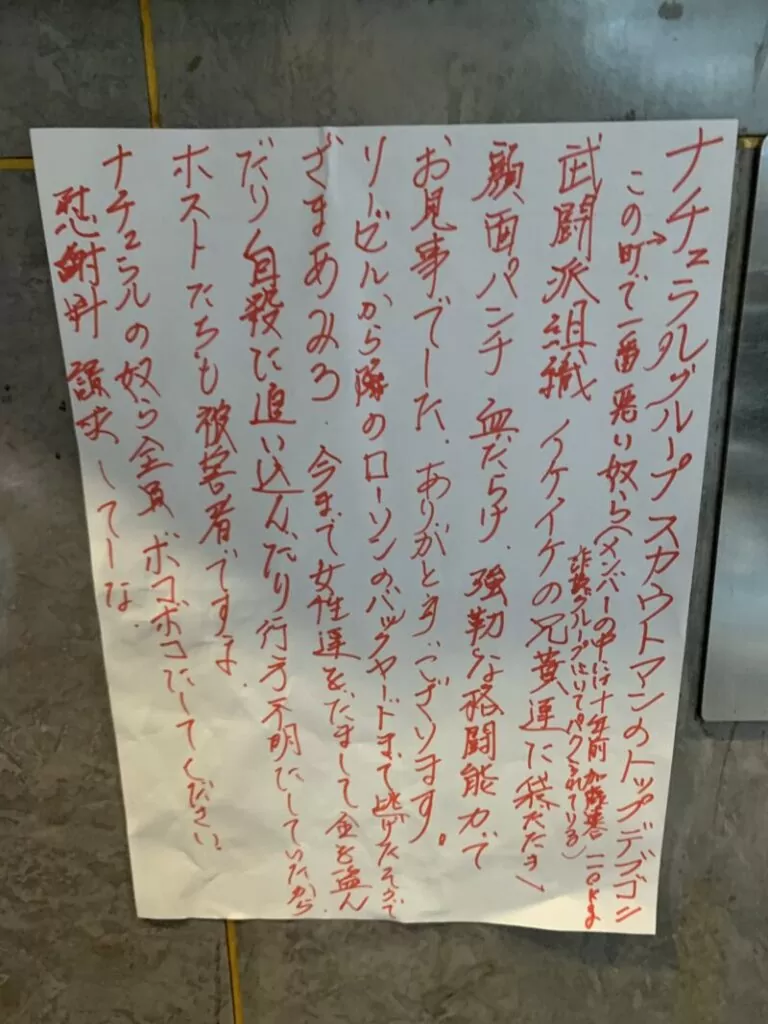 ナチュラルグループスカウトマンのトップデブゴン
この町で一番悪い奴ら(メンバーの中には十年前加藤 一一〇kg
詐欺グループにいてパクられている)
武闘派組織 イケイケの兄貴達に袋だたき
顔面パンチ 血だらけ、強靭な格闘能力で
お見事でした、ありがとうございます。
リービルから隣のローソンのバックヤードまで逃げたそうで
ざまあみろ、今まで女性達をだまして金を盗ん
だり自殺に追い込んだり行方不明にしていたから
ホストたちも被害者ですよ
ナチュラルの奴ら全員ボコボコにしてください
慰謝料請求してーな